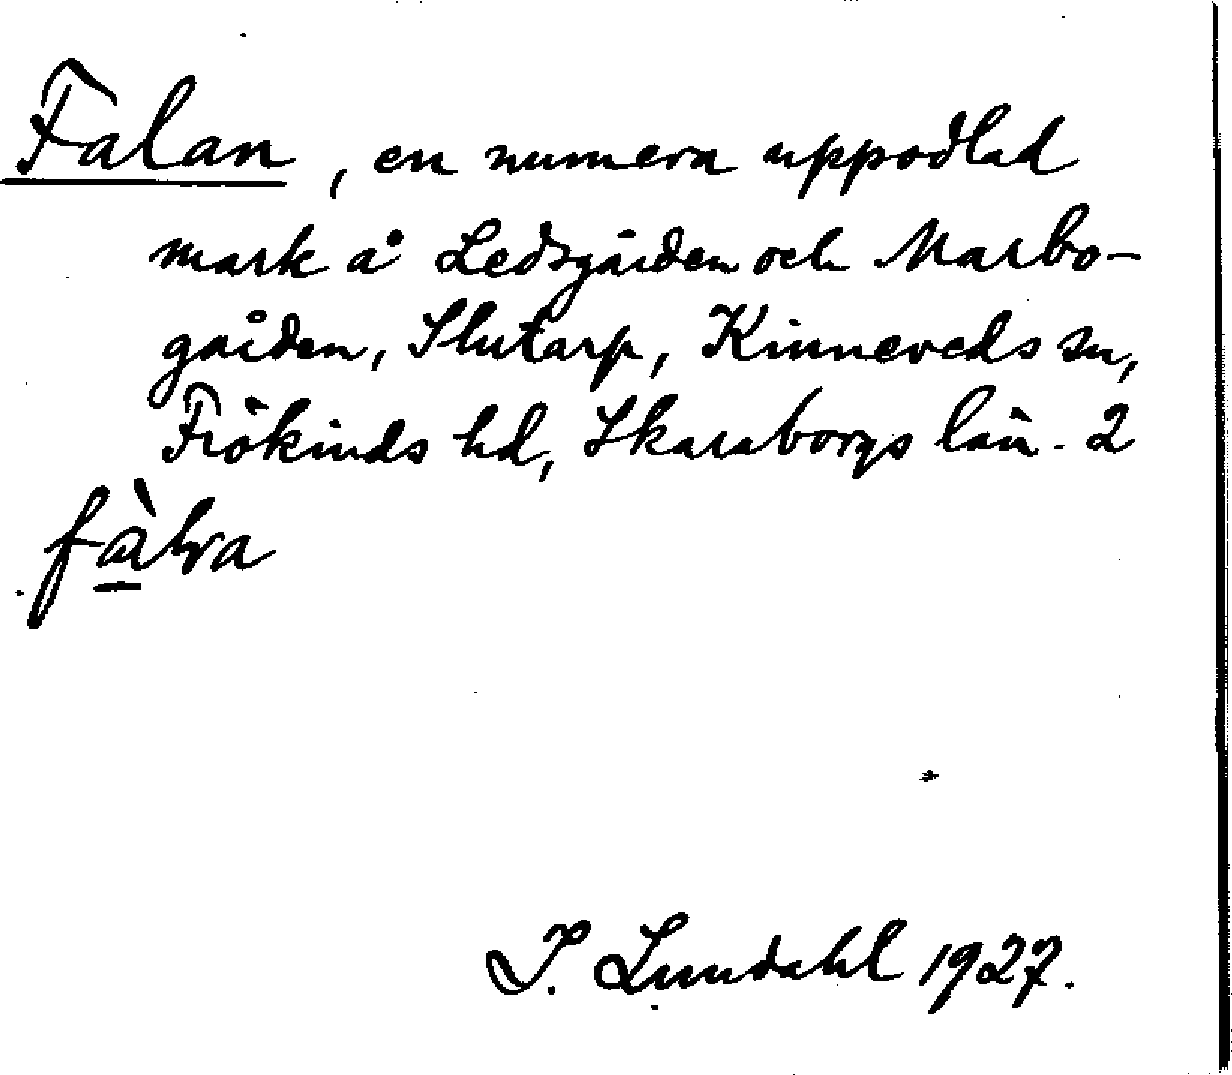 Falan, en numera uppodlad
mark å Ledsgården och Marbo-
gården, Slutarp, Kinneveds sn,
Frökinds hd, Skaraborgs län. 2
I. Lundahl 1927.